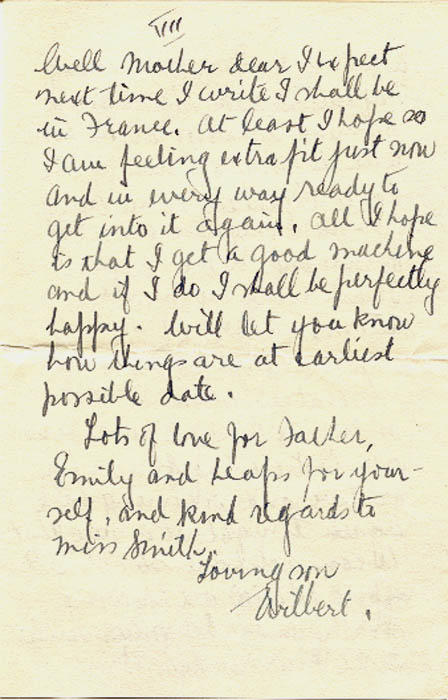 VIII
Well Mother dear I expect
next time I write I shall be
in France. At least I hope so
I am feeling extra fit just now
and in every way ready to
get into it again. All I hope
is that I get a good machine
and if I do I shall be perfectly
happy. Will let you know
how things are at earliest
possible date.
Lots of love for Father,
Emily and heaps for your-
self, and kind regards to
Miss Smith.
Loving son
Wilbert.